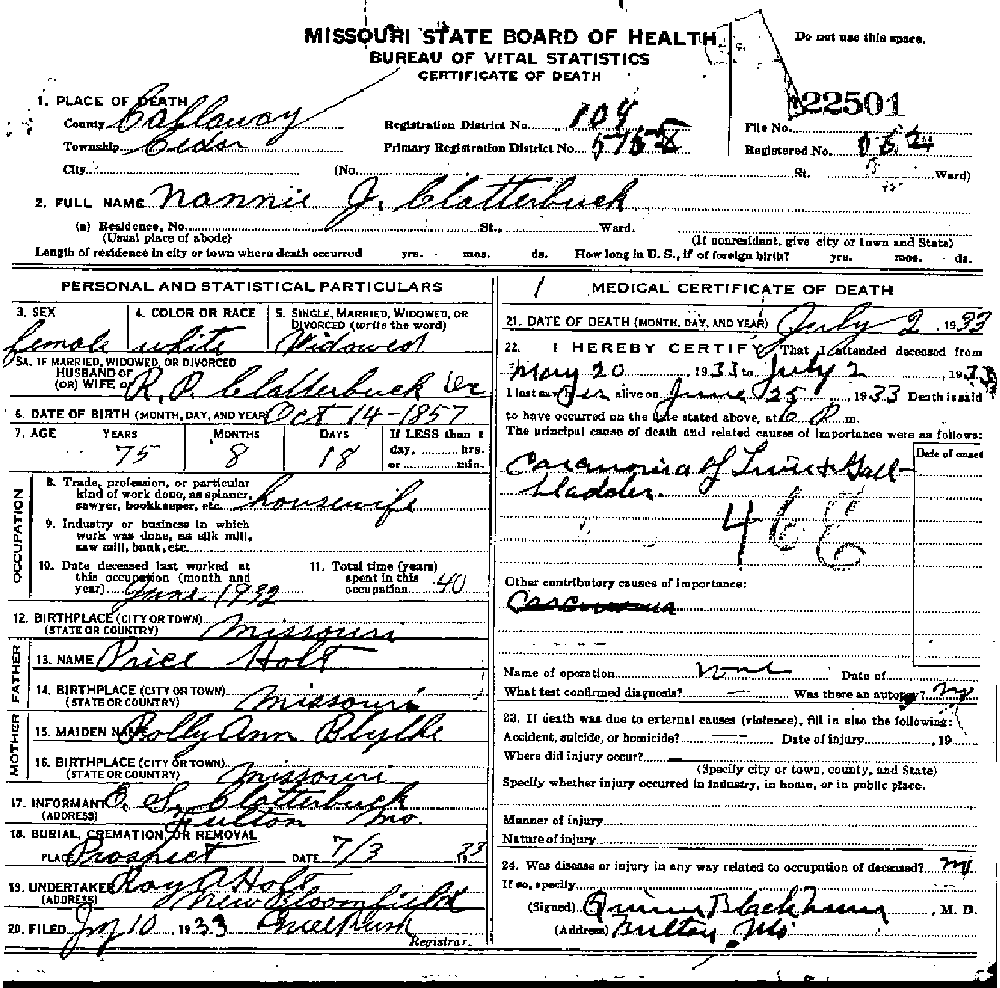 MISSOURI STATE BOARD OF HEALTH
BUREAU OF VITAL STATISTICS
CERTIFICATE OF DEATH
Do not use this space.
22501
1. PLACE OF DEATH
County Callaway
Township Cedar
City
Registration District No. 104
Primary Registration District No. 5158
File No.
Registered No.
(No. St. Ward)
2. FULL NAME Nannie J. Clatterbuck
(a) Residence, No. St., Ward.
(Usual place of abode) (If nonresident, give city or town and State)
Length of residence in city or town where death occurred yrs. mos. ds. How long in U. S., if of foreign birth? yrs. mos. ds.
PERSONAL AND STATISTICAL PARTICULARS
3. SEX female
4. COLOR OR RACE white
5. SINGLE, MARRIED, WIDOWED, OR DIVORCED (write the word) Widowed
5A. IF MARRIED, WIDOWED, OR DIVORCED
HUSBAND OF
(OR) WIFE OF R. O. Clatterbuck
6. DATE OF BIRTH (MONTH, DAY, AND YEAR) Oct 14-1857
7. AGE YEARS MONTHS DAYS If LESS than 1
75 8 18 day, hrs.
or min.
OCCUPATION
8. Trade, profession, or particular
kind of work done, as spinner,
sawyer, bookkeeper, etc. housewife
9. Industry or business in which
work was done, as silk mill,
saw mill, bank, etc.
10. Date deceased last worked at
this occupation (month and
year) June 1932
11. Total time (years)
spent in this
occupation 40
12. BIRTHPLACE (CITY OR TOWN)
(STATE OR COUNTRY) Missouri
FATHER
13. NAME Price Holt
14. BIRTHPLACE (CITY OR TOWN)
(STATE OR COUNTRY) Missouri
MOTHER
15. MAIDEN NAME Polly Ann Blythe
16. BIRTHPLACE (CITY OR TOWN)
(STATE OR COUNTRY) Missouri
17. INFORMANT O. S. Clatterbuck
(ADDRESS) Fulton Mo.
18. BURIAL, CREMATION, OR REMOVAL
PLACE Prospect DATE 7/3 33
19. UNDERTAKER Roy A Holt
(ADDRESS) New Bloomfield
20. FILED 10 1933
Registrar.
MEDICAL CERTIFICATE OF DEATH
21. DATE OF DEATH (MONTH, DAY, AND YEAR) July 2, 1933
22. I HEREBY CERTIFY, That I attended deceased from
May 20 1933 to July 2, 1933
I last saw her alive on June 25, 1933 Death is said
to have occurred on the date stated above, at 6 P. m.
The principal cause of death and related causes of importance were as follows:
Date of onset
Carcinoma of Liver & Gall-
bladder.
Other contributory causes of importance:
Name of operation none Date of
What test confirmed diagnosis? — Was there an autopsy? no
23. If death was due to external causes (violence), fill in also the following:
Accident, suicide, or homicide? — Date of injury , 19
Where did injury occur? —
(Specify city or town, county, and State)
Specify whether injury occurred in industry, in home, or in public place.
Manner of injury
Nature of injury
24. Was disease or injury in any way related to occupation of deceased? no
If so, specify
(Signed) , M. D.
(Address) Fulton, Mo